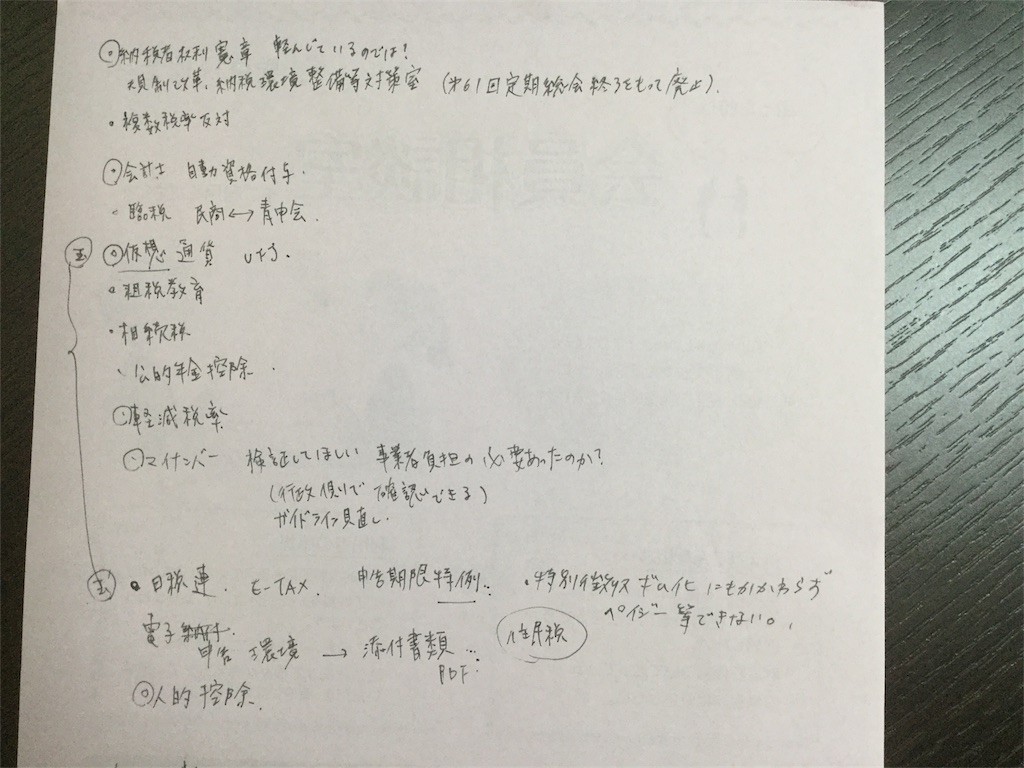 納税者権利憲章 軽んじているのでは!
税制改革、納税環境整備等対策室 (第61回定期総会終了をもって廃止).
・複数税率反対
会計士 自動資格付与.
・臨税 民商↔青申会.
仮想通貨
・租税教育
・相続税
、公的年金控除.
軽減税率
マイナンバー 検証してほしい 事業者負担の必要あったのか?
(行政側で確認できる)
ガイドライン見直し.
・日税連. E-TAX 申告期限特例.. ・特別徴収 ギム化にもかかわらず
ペイジー等できない。
電子
申告環境 → 添付書類... 住民税
PDF.
人的控除.
会員相談室